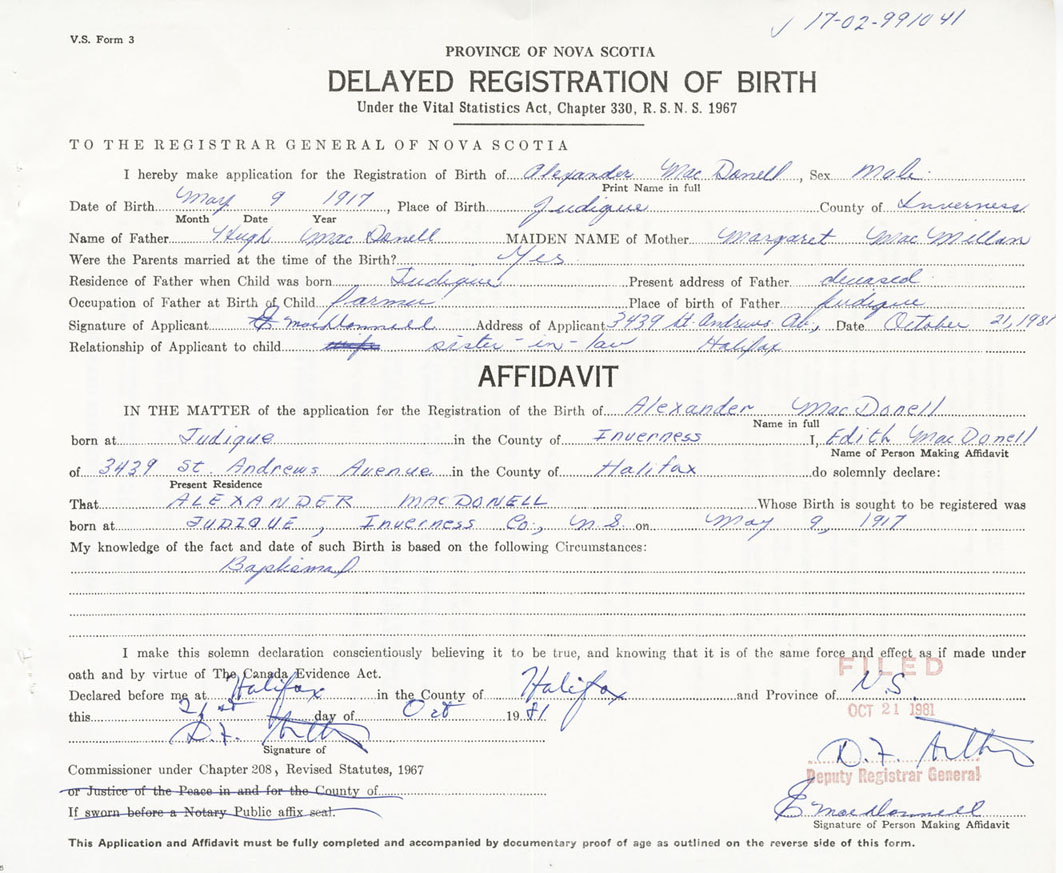 17-02-991041
V.S. Form 3
PROVINCE OF NOVA SCOTIA
DELAYED REGISTRATION OF BIRTH
Under the Vital Statistics Act, Chapter 330, R.S.N.S. 1967
TO THE REGISTRAR GENERAL OF NOVA SCOTIA
I hereby make application for the Registration of Birth of Alexander Mac Donell, Sex Male
Print Name in full
Date of Birth May 9 1917, Place of Birth Judique County of Inverness
Month Date Year
Name of Father Hugh Mac Donell MAIDEN NAME of Mother Margaret Mac Millan
Were the Parents married at the time of the Birth? Yes
Residence of Father when Child was born Judique Present address of Father deceased
Occupation of Father at Birth of Child farmer Place of birth of Father Judique
Signature of Applicant E MacDonnell Address of Applicant 3439 St. Andrews Av., Date October 21, 1981
Relationship of Applicant to child sister-in-law Halifax
AFFIDAVIT
IN THE MATTER of the application for the Registration of the Birth of Alexander MacDonell
Name in full
born at Judique in the County of Inverness I, Edith MacDonell
Name of Person Making Affidavit
of 3439 St. Andrews Avenue in the County of Halifax do solemnly declare:
Present Residence
That ALEXANDER MACDONELL Whose Birth is sought to be registered was
born at JUDIQUE, INVERNESS Co., N.S. on May 9, 1917
My knowledge of the fact and date of such Birth is based on the following Circumstances:
Baptismal
I make this solemn declaration conscientiously believing it to be true, and knowing that it is of the same force and effect as if made under
oath and by virtue of The Canada Evidence Act.
FILED
Declared before me at Halifax in the County of Halifax and Province of N.S.
this 21st day of Oct 1981
OCT 21 1981
D.F.
Signature of
D.F.
Commissioner under Chapter 208, Revised Statutes, 1967
Deputy Registrar General
or Justice of the Peace in and for the County of
E MacDonnell
If sworn before a Notary Public affix seal.
Signature of Person Making Affidavit
This Application and Affidavit must be fully completed and accompanied by documentary proof of age as outlined on the reverse side of this form.